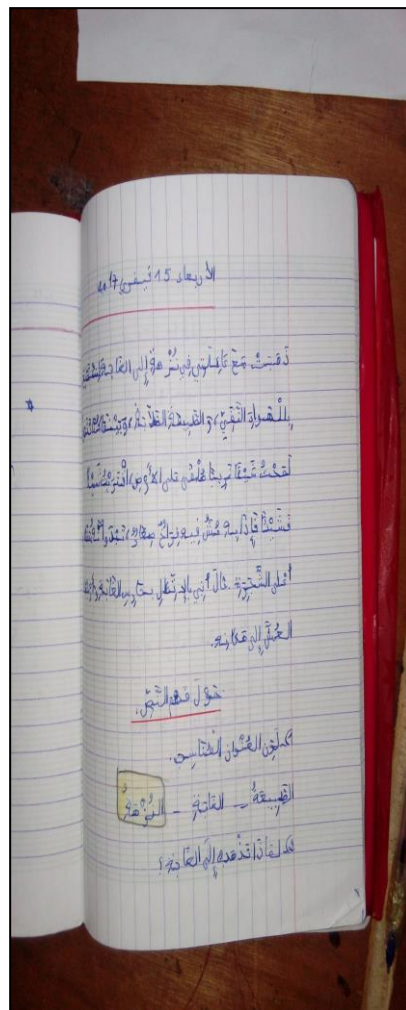 الأربعاء 15 فيفري 2017
ذهبت مع عائلتي في نزهة إلى الغابة
بالهواء النقي، و الطبيعة الخلابة، وبينما
لمحت شيئا غريبا ملقى على الأرض، اقتربت شيئا
فشيئا فإذا به عش فيه فراخ صغار،
أعلى الشجرة. قال أبي: الغابة
العش إلى مكانه.
حول فهم النص.
لون العنوان المناسب.
الطبيعة - الغابة - النزهة
لماذا تذهب إلى الغابة؟